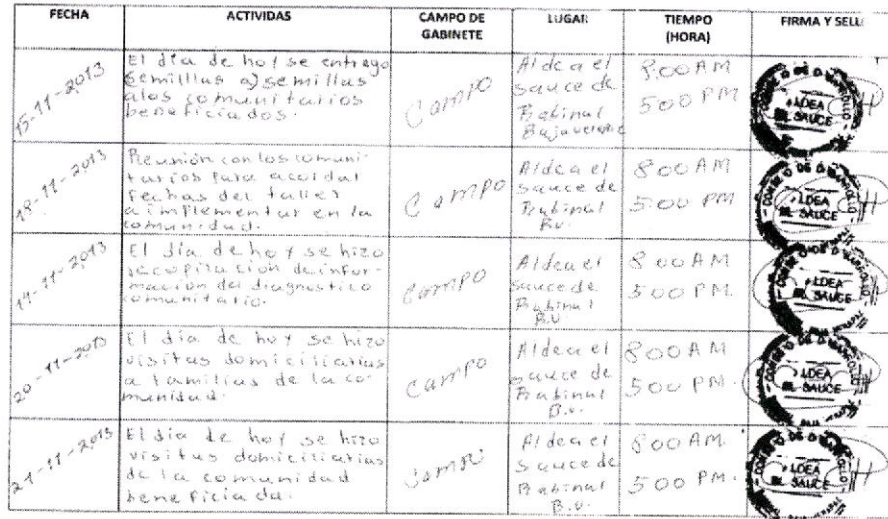 FECHA
ACTIVIDAS
CAMPO DE
GABINETE
LUGAR
TIEMPO
(HORA)
FIRMA Y SELL
15-11-2013
El día de hoy se entrego
semillas
alos comunitarios
beneficiados.
Campo
Aldea el
sauce de
Rabinal
Bajaverapaz
8:00 AM
5:00 PM
ALDEA
EL SAUCE
18-11-2013
Reunión con los comuni-
tarios para acordal
Fechas del taller
a implementar en la
comunidad.
Campo
Aldea el
sauce de
Rabinal
B.v.
8:00 AM
5:00 PM
ALDEA
EL SAUCE
19-11-2013
El día de hoy se hizo
recopilación de infor-
mación del diagnostico
comunitario.
Campo
Aldea el
sauce de
Rabinal
B.v.
8:00 AM
5:00 PM.
ALDEA
EL SAUCE
20-11-2013
El día de hoy se hizo
visitas domiciliarias
a familias de la co-
munidad.
Campo
Aldea el
sauce de
Rabinal
B.v.
8:00 AM
5:00 PM.
ALDEA
EL SAUCE
21-11-2013
El día de hoy se hizo
visitas domiciliarias
de la comunidad
beneficiada.
Campo
Aldea el
sauce de
Rabinal
B.v.
8:00 AM.
5:00 PM.
ALDEA
EL SAUCE